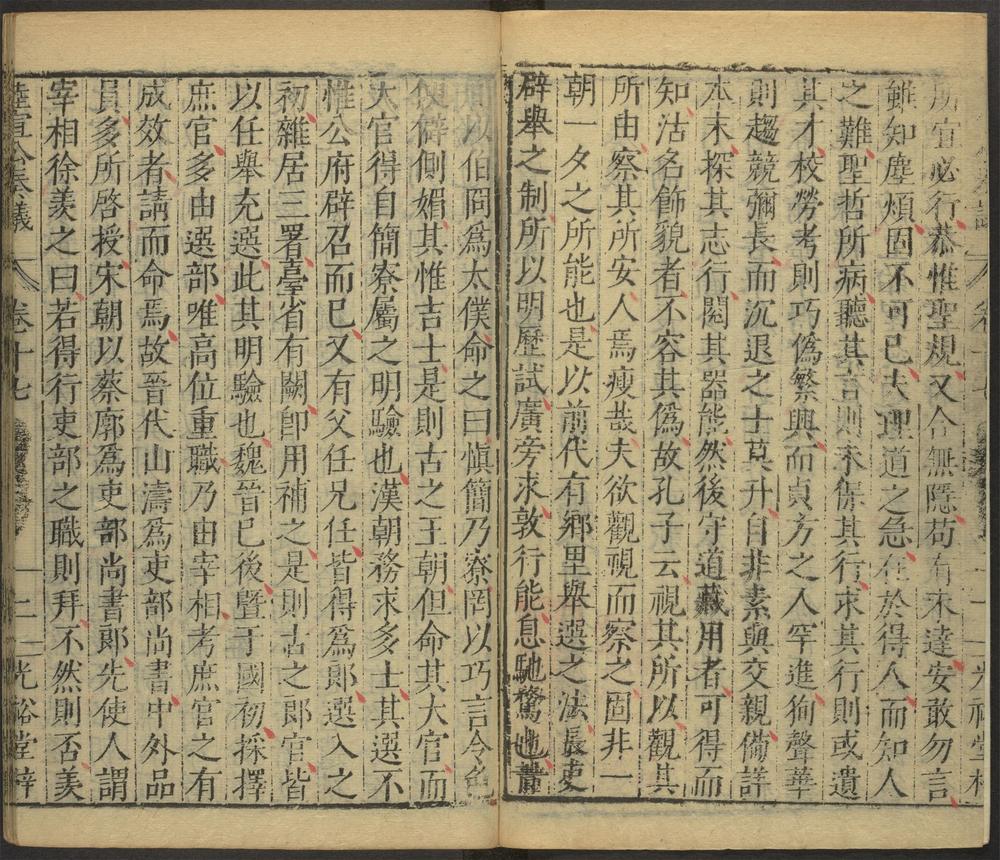 所宜必行恭惟聖規又合無隱苟有未達安敢勿言
雖知塵煩固不可已夫理道之急在於得人而知人
之難聖哲所病聽其言則未保其行求其行則或遺
其才校勞考則巧偽繁興而貞方之人罕進徇聲華
則趨競彌長而沉退之士莫升自非素與交親備詳
本末探其志行閱其器能然後守道藏用者可得而
知沽名飾貌者不容其偽故孔子云視其所以觀其
所由察其所安人焉廋哉夫欲觀視而察之固非一
朝一夕之所能也是以前代有鄉里舉選之法長吏
辟舉之制所以明歷試廣旁求敦行能息馳騖也
則以伯冏為太僕命之曰慎簡乃寮罔以巧言令色
便僻側媚其惟吉士是則古之王朝但命其大官而
大官得自簡寮屬之明驗也漢朝務求多士其選不
惟公府辟召而已又有父任兄任皆得為郎選入之
初雜居三署臺省有闕即用補之是則古之郎官皆
以任舉充選此其明驗也魏晉已後暨于國初採擇
庶官多由選部唯高位重職乃由宰相考庶官之有
成效者請而命焉故晉代山濤為吏部尚書中外品
員多所啓授宋朝以蔡廓為吏部尚書郎先使人謂
宰相徐羨之曰若得行吏部之職則拜不然則否羨
陸宣公奏議 卷十七 二 光裕堂梓